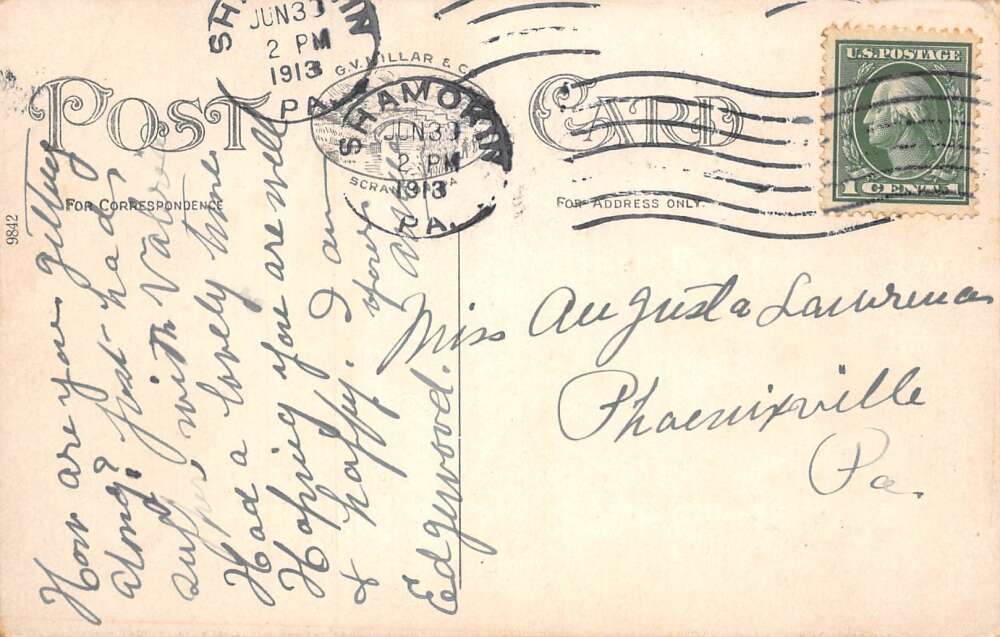 SHAMOKIN
JUN 30
2 PM
1913
PA.
SHAMOKIN
JUN 30
2 PM
1913
PA.
G.V. MILLAR & CO.
SCRANTON PA
POST CARD
U.S. POSTAGE
1 CENT 1
FOR CORRESPONDENCE
FOR ADDRESS ONLY.
9842
How are you
along? Just had
supper with
Had a lovely time
Hoping you are well
& happy. I am
Edgewood.
Miss Augusta Lawrence
Phoenixville
Pa.